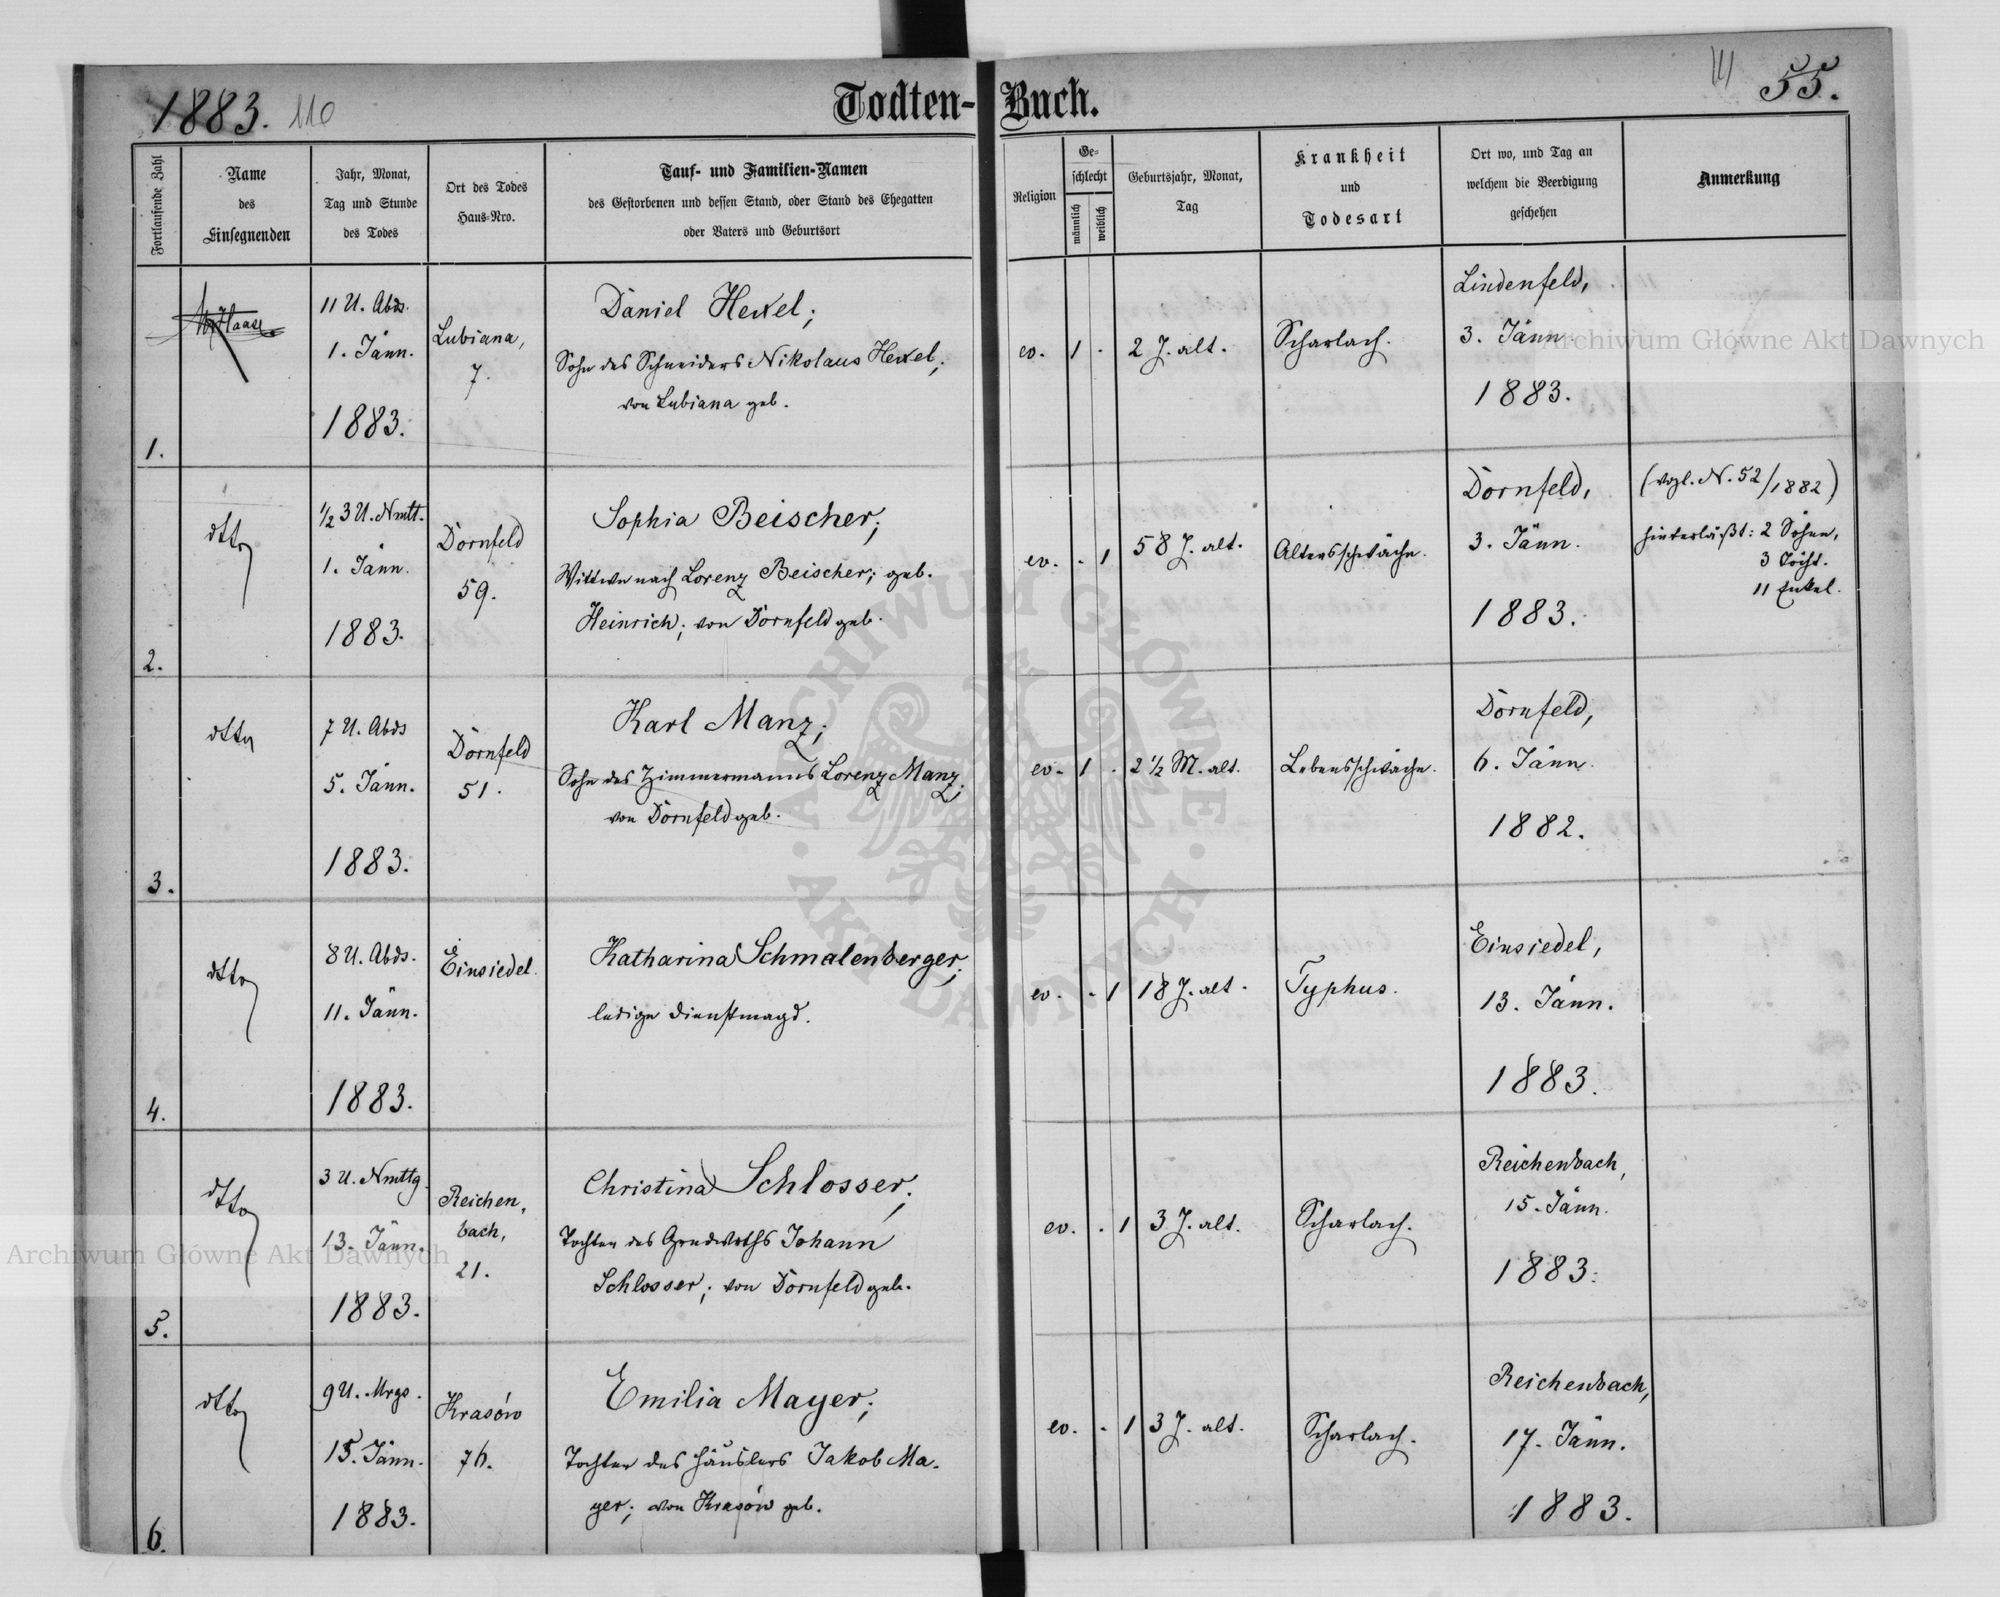 1883. 110
Todten-Buch.
111 55.
Fortlaufende Zahl
Name
des
Einsegnenden
Jahr, Monat,
Tag und Stunde
des Todes
Ort des Todes
Haus-Nro.
Tauf- und Familien-Namen
des Gestorbenen und dessen Stand, oder Stand des Ehegatten
oder Vaters und Geburtsort
Religion
Ge-
schlecht
männlich
weiblich
Geburtsjahr, Monat,
Tag
Krankheit
und
Todesart
Ort wo, und Tag an
welchem die Beerdigung
geschehen
Anmerkung
1.
Haase
11 U. Abds.
1. Jänn.
1883.
Lubiana,
7.
Daniel Hexel;
Sohn des Schneiders Nikolaus Hexel;
von Lubiana geb.
ev.
1
.
2 J. alt.
Scharlach.
Lindenfeld,
3. Jänn.
1883.
2.
dtto
½ 3 U. Nmtt.
1. Jänn.
1883.
Dornfeld
59.
Sophia Beischer;
Wittwe nach Lorenz Beischer; geb.
Heinrich; von Dornfeld geb.
ev.
.
1
58 J. alt.
Altersschwäche.
Dornfeld,
3. Jänn.
1883.
(vgl. N. 52/1882)
hinterläßt: 2 Söhne,
3 Töcht.
11 Enkel.
3.
dtto
7 U. Abds
5. Jänn.
1883.
Dornfeld
51.
Karl Manz;
Sohn des Zimmermanns Lorenz Manz;
von Dornfeld geb.
ev.
1
.
2 ½ M. alt.
Lebensschwäche.
Dornfeld,
6. Jänn.
1882.
4.
dtto
8 U. Abds.
11. Jänn.
1883.
Einsiedel.
Katharina Schmalenberger;
ledige Dienstmagd.
ev.
.
1
18 J. alt.
Typhus.
Einsiedel,
13. Jänn.
1883.
5.
dtto
3 U. Nmttg.
13. Jänn.
1883.
Reichen,
bach,
21.
Christina Schlosser;
Tochter des Grndwrths Johann
Schlosser; von Dornfeld geb.
ev.
.
1
3 J. alt.
Scharlach.
Reichenbach,
15. Jänn.
1883.
6.
dtto
9 U. Mrgs.
15. Jänn.
1883.
Krasów
76.
Emilia Mayer;
Tochter des Häuslers Jakob Ma-
yer; von Krasów geb.
ev.
.
1
3 J. alt.
Scharlach.
Reichenbach,
17. Jänn.
1883.
Archiwum Główne Akt Dawnych
Archiwum Główne Akt Dawnych
· ARCHIWUM GŁÓWNE ·
AKT DAWNYCH